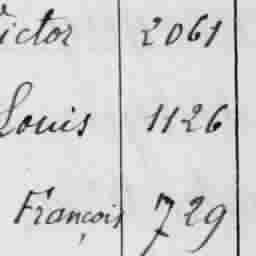 ictor 2061
Louis 1126
François 729